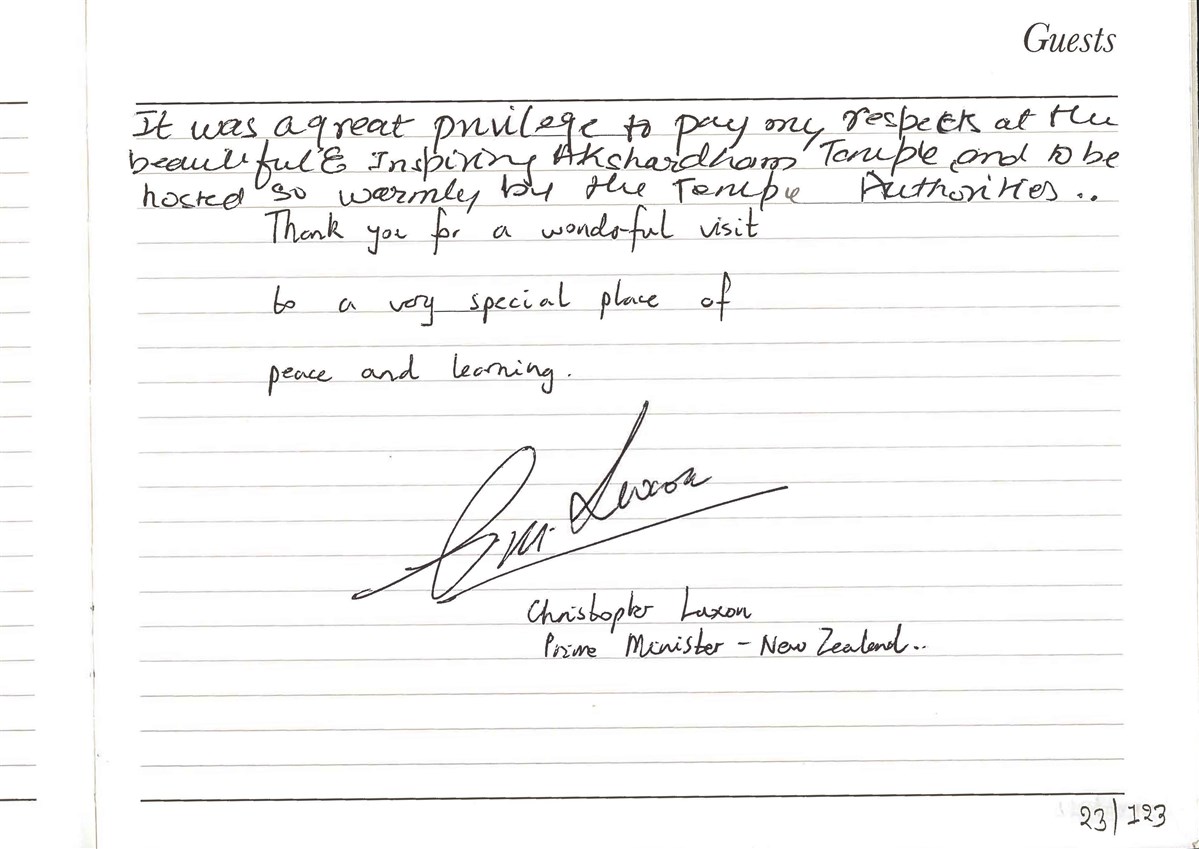 Guests
It was a great privilege to pay my respects at the
beautiful & Inspiring Akshardham Temple and to be
hosted so warmly by the Temple Authorities..
Thank you for a wonderful visit
to a very special place of
peace and learning.
CM. Luxon
Christopher Luxon
Prime Minister - New Zealand..
23/123